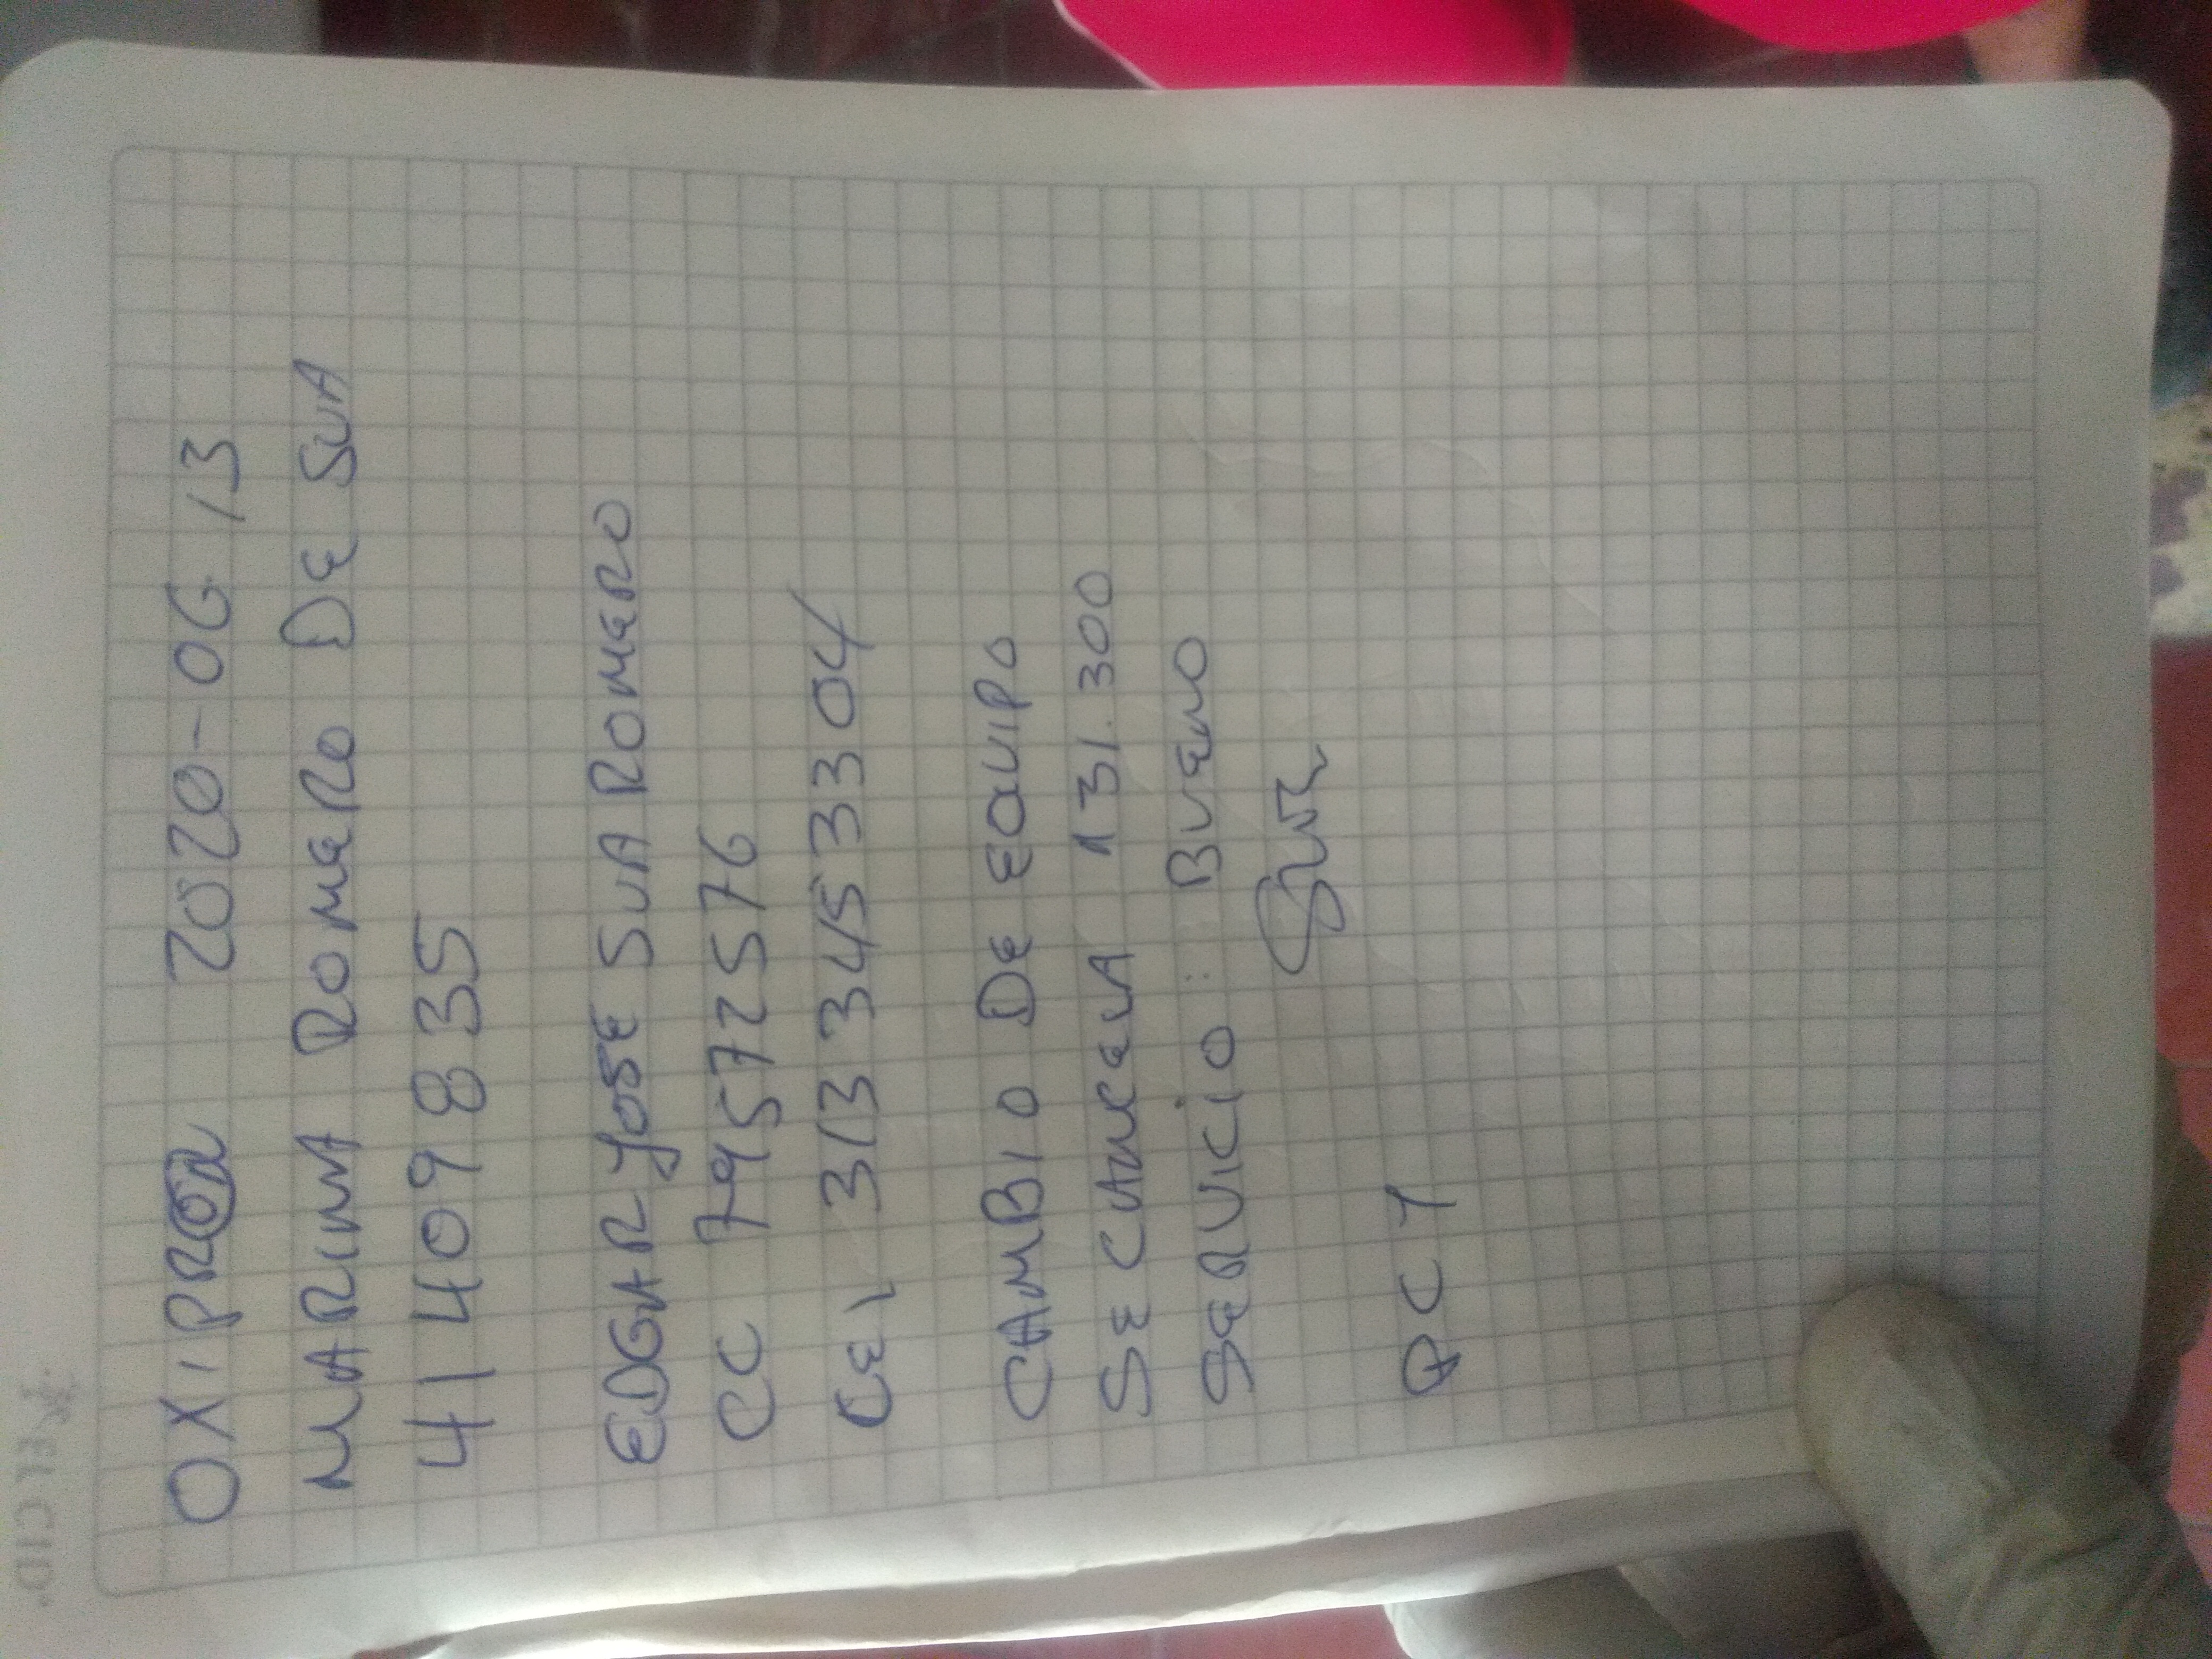 OXIPROR 2020-06 13
MARINA ROMERO DE SUA
41409835
EDGAR JOSE SUA ROMERO
CC 79572576
CEL 3133453304
CAMBIO DE EQUIPO
SE CANCELA 131.300
SERVICIO: BUENO